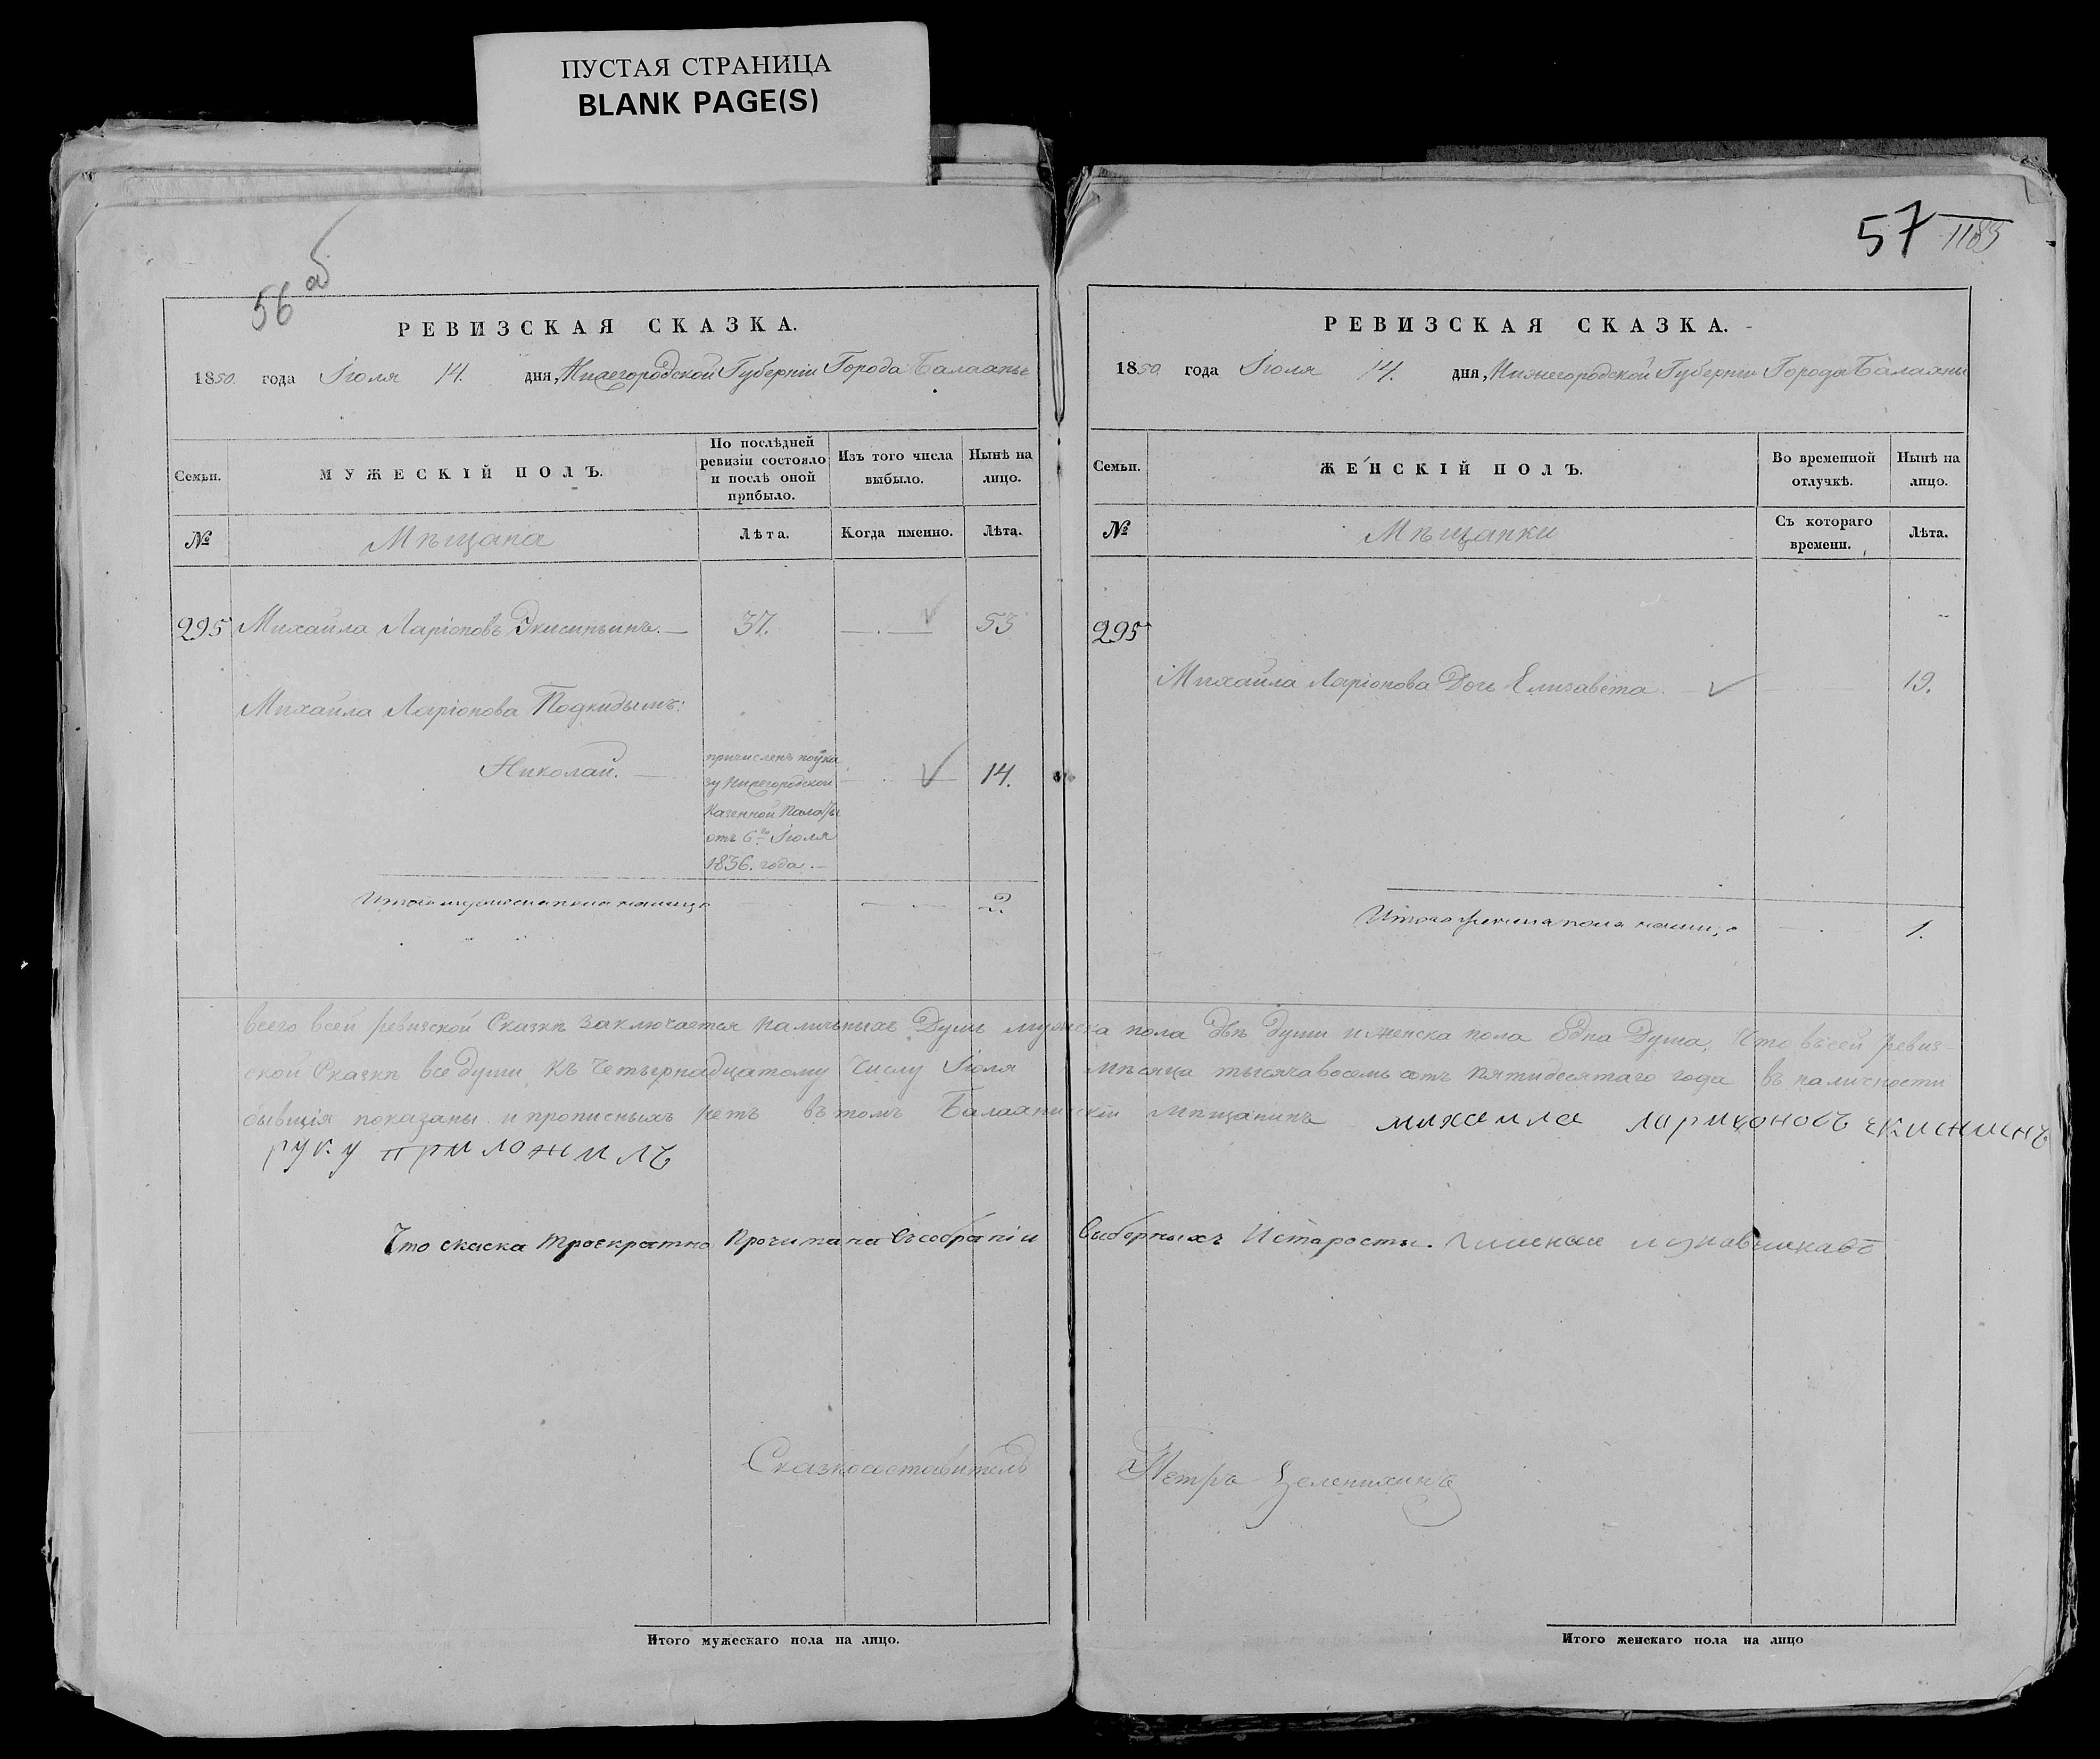 ПУСТАЯ СТРАНИЦА
BLANK PAGE(S)
56 об
РЕВИЗСКАЯ СКАЗКА.
1850. года Іюля 14. дня, Нижегородской Губерніи Города Балахны
Семьи.
МУЖЕСКІЙ ПОЛЪ.
По послѣдней
ревизіи состояло
и послѣ оной
прибыло.
Изъ того числа
выбыло.
Нынѣ на
лицо.
№
Мѣщана
Лѣта.
Когда именно.
Лѣта.
295 Михайла Ларіоновъ 37. 53
Михайла Ларіонова Подкидышъ:
Николай. 14.
причисленъ по Ука
зу Нижегородской
Казенной Палаты
отъ 6го Іюля
1836. года.
Итого мужеска пола налицо 2.
57
1183
РЕВИЗСКАЯ СКАЗКА.
1850. года Іюля 14. дня, Нижегородской Губерніи Города Балахны
Семьи.
ЖЕНСКІЙ ПОЛЪ.
Во временной
отлучкѣ.
Нынѣ на
лицо.
№
Мѣщанки
Съ котораго
времени.
Лѣта.
295
Михайла Ларіонова Дочь Елизавета 19.
Итого женска пола налицо 1.
всего всей ревизской Сказкѣ заключается наличныхъ Душъ мужеска пола двѣ души и женска пола одна Душа, Что въ сей ревиз-
ской Сказкѣ все души къ четырнадцатому числу Іюля мѣсяца тысяча восемь сотъ пятидесятаго года въ наличности
бывшія показаны и прописныхъ нетъ въ томъ Балахнинскій мѣщанинъ михаила ларионовъ
руку приложилъ
Что скаска троекратно прочитана въ собраніи выборныхъ И старосты.
Сказкосоставитель Петръ Зеленихинъ
Итого мужескаго пола на лицо.
Итого женскаго пола на лицо